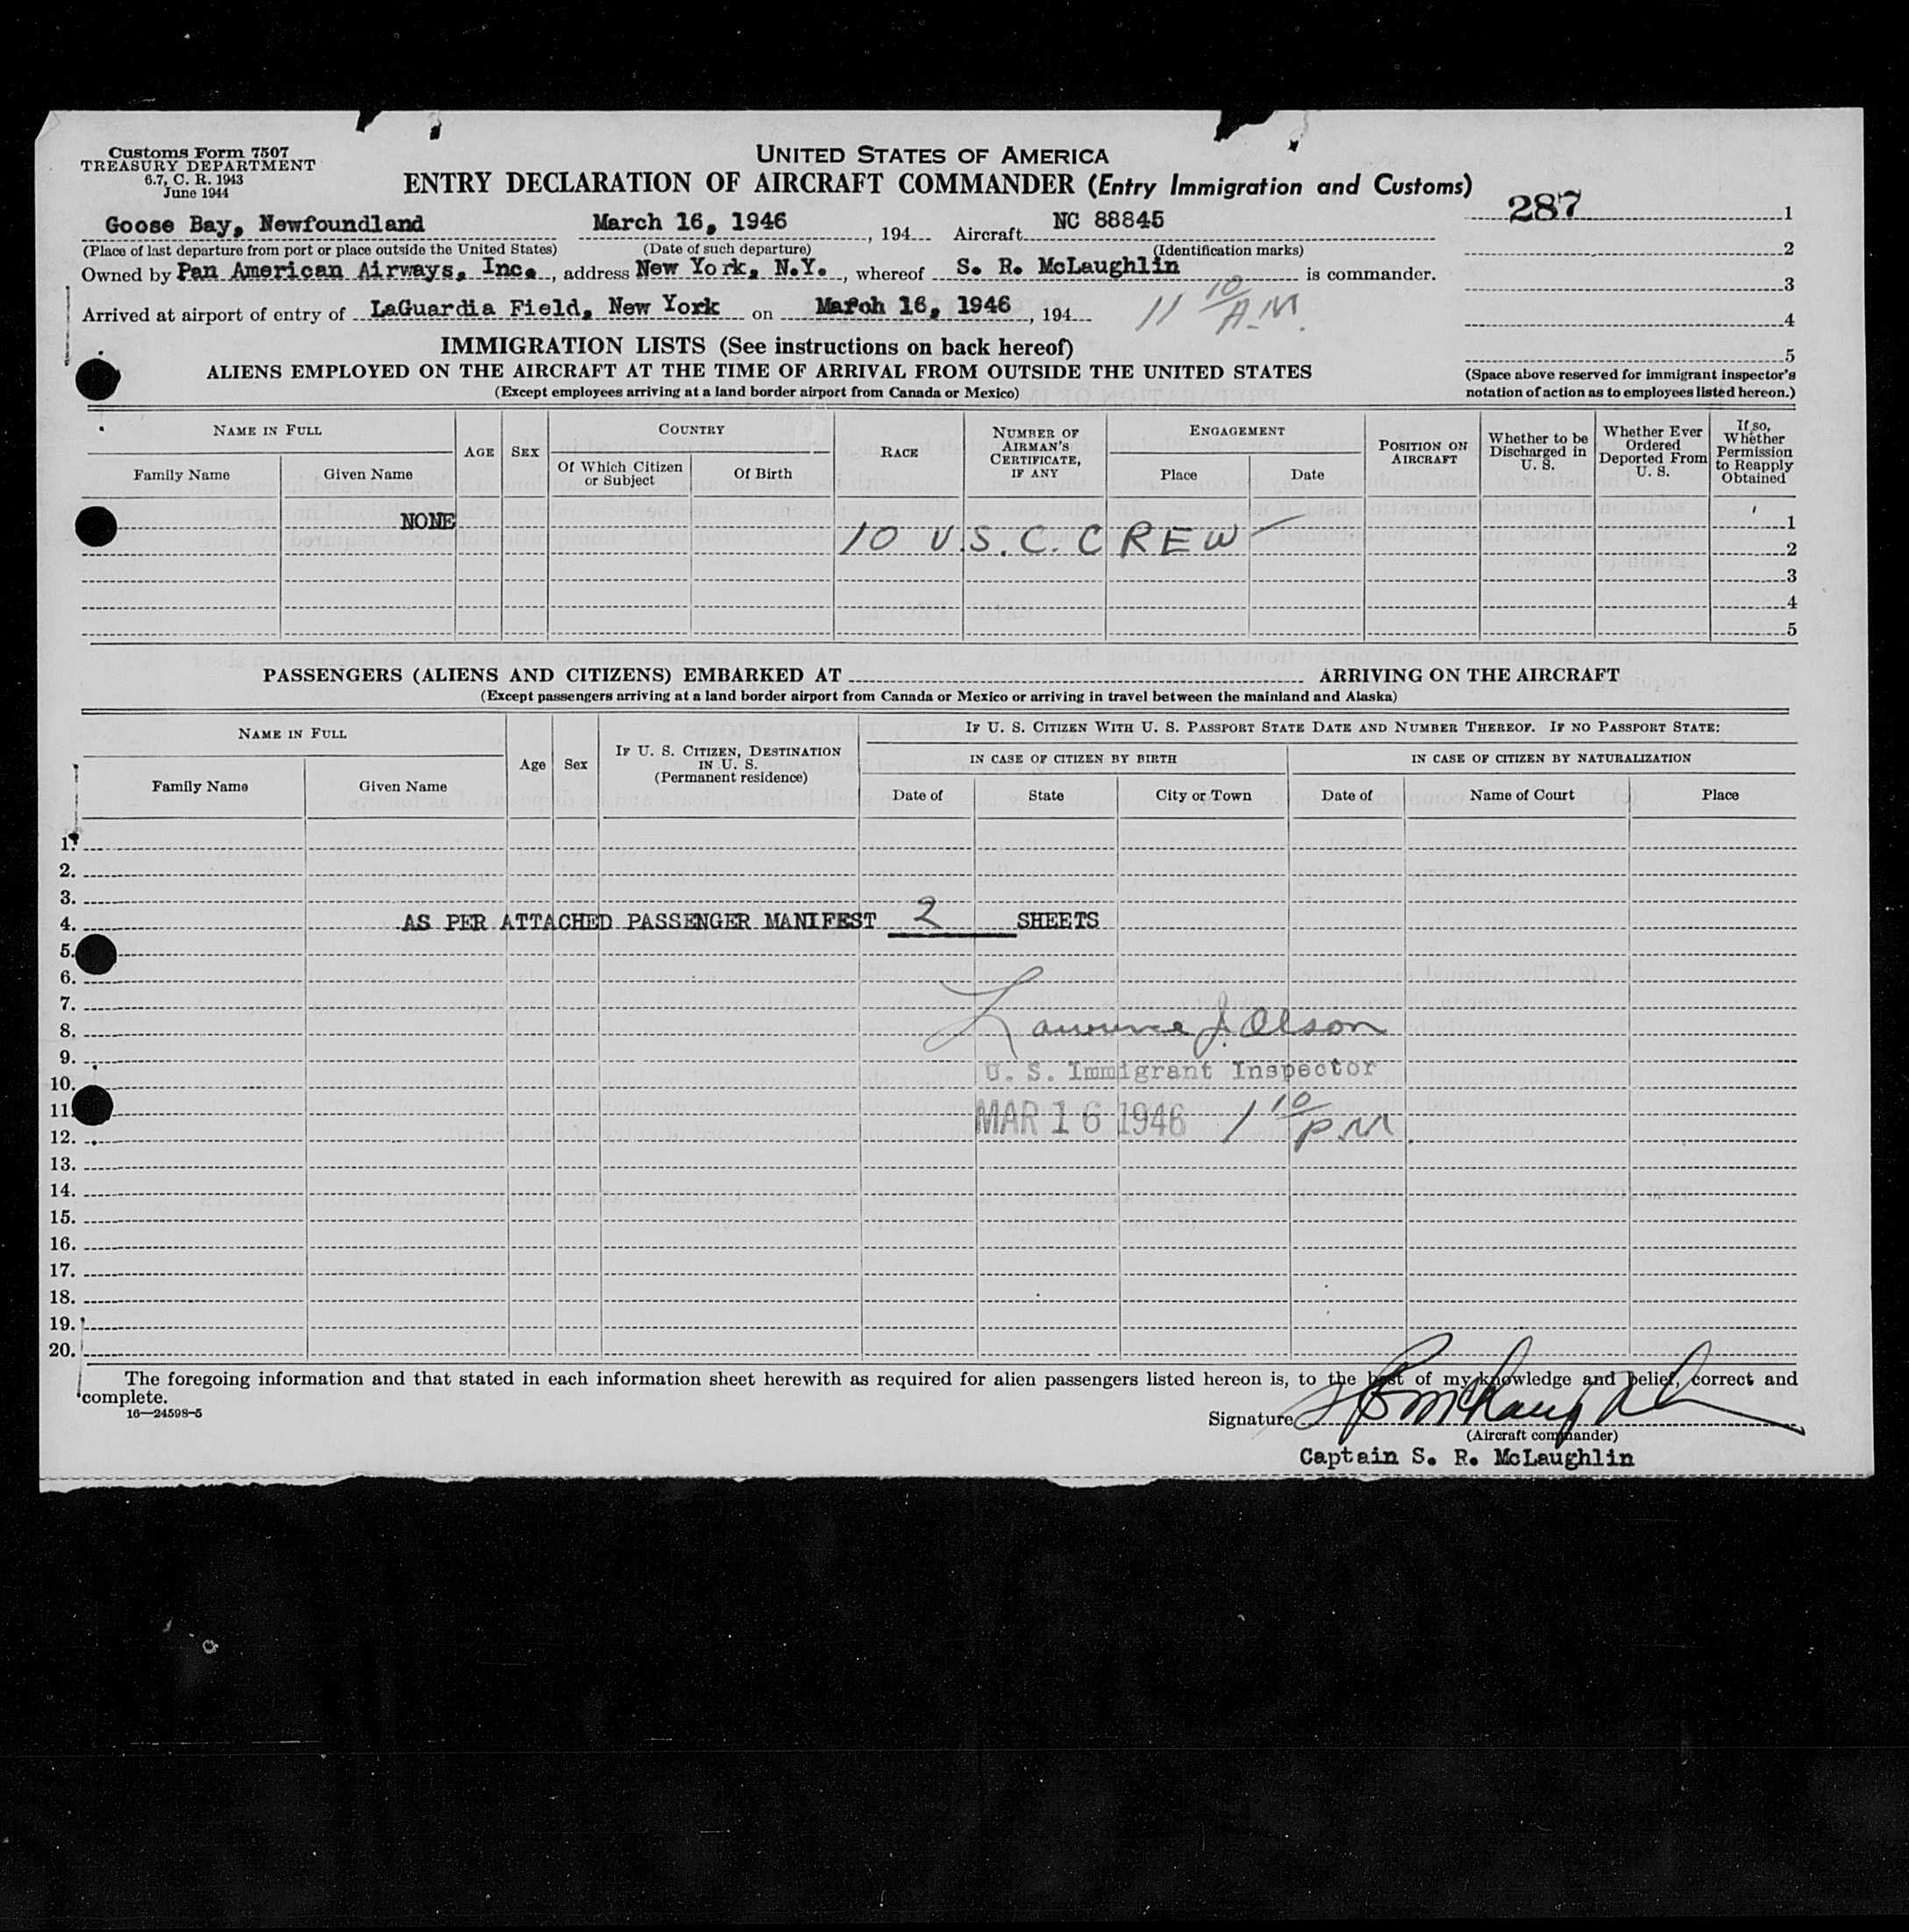 Customs Form 7507
TREASURY DEPARTMENT
6.7, C. R. 1943
June 1944
UNITED STATES OF AMERICA
ENTRY DECLARATION OF AIRCRAFT COMMANDER (Entry Immigration and Customs)
287 1
Goose Bay, Newfoundland March 16, 1946, 194 Aircraft NC 88845
(Place of last departure from port or place outside the United States) (Date of such departure) (Identification marks)
2
Owned by Pan American Airways, Inc., address New York, N.Y., whereof S. R. McLaughlin is commander.
3
Arrived at airport of entry of LaGuardia Field, New York on March 16, 1946, 194 11 10 A.M.
4
5
IMMIGRATION LISTS (See instructions on back hereof)
ALIENS EMPLOYED ON THE AIRCRAFT AT THE TIME OF ARRIVAL FROM OUTSIDE THE UNITED STATES
(Except employees arriving at a land border airport from Canada or Mexico)
(Space above reserved for immigrant inspector's
notation of action as to employees listed hereon.)
NAME IN FULL
Family Name Given Name
AGE SEX
COUNTRY
Of Which Citizen
or Subject
Of Birth
RACE
NUMBER OF
AIRMAN'S
CERTIFICATE,
IF ANY
ENGAGEMENT
Place Date
POSITION ON
AIRCRAFT
Whether to be
Discharged in
U. S.
Whether Ever
Ordered
Deported From
U. S.
If so,
Whether
Permission
to Reapply
Obtained
NONE 1
10 U.S.C. CREW 2
3
4
5
PASSENGERS (ALIENS AND CITIZENS) EMBARKED AT ARRIVING ON THE AIRCRAFT
(Except passengers arriving at a land border airport from Canada or Mexico or arriving in travel between the mainland and Alaska)
NAME IN FULL
Family Name Given Name
Age Sex
IF U. S. CITIZEN, DESTINATION
IN U. S.
(Permanent residence)
IF U. S. CITIZEN WITH U. S. PASSPORT STATE DATE AND NUMBER THEREOF. IF NO PASSPORT STATE:
IN CASE OF CITIZEN BY BIRTH IN CASE OF CITIZEN BY NATURALIZATION
Date of State City or Town Date of Name of Court Place
1.
2.
3.
4. AS PER ATTACHED PASSENGER MANIFEST 2 SHEETS
5.
6.
7.
8. Lawrence J. Olson
9. U. S. Immigrant Inspector
10.
11. MAR 16 1946 1 10 P.M.
12.
13.
14.
15.
16.
17.
18.
19.
20.
The foregoing information and that stated in each information sheet herewith as required for alien passengers listed hereon is, to the best of my knowledge and belief, correct and
complete.
16—24598-5
Signature S R McLaughlin
(Aircraft commander)
Captain S. R. McLaughlin